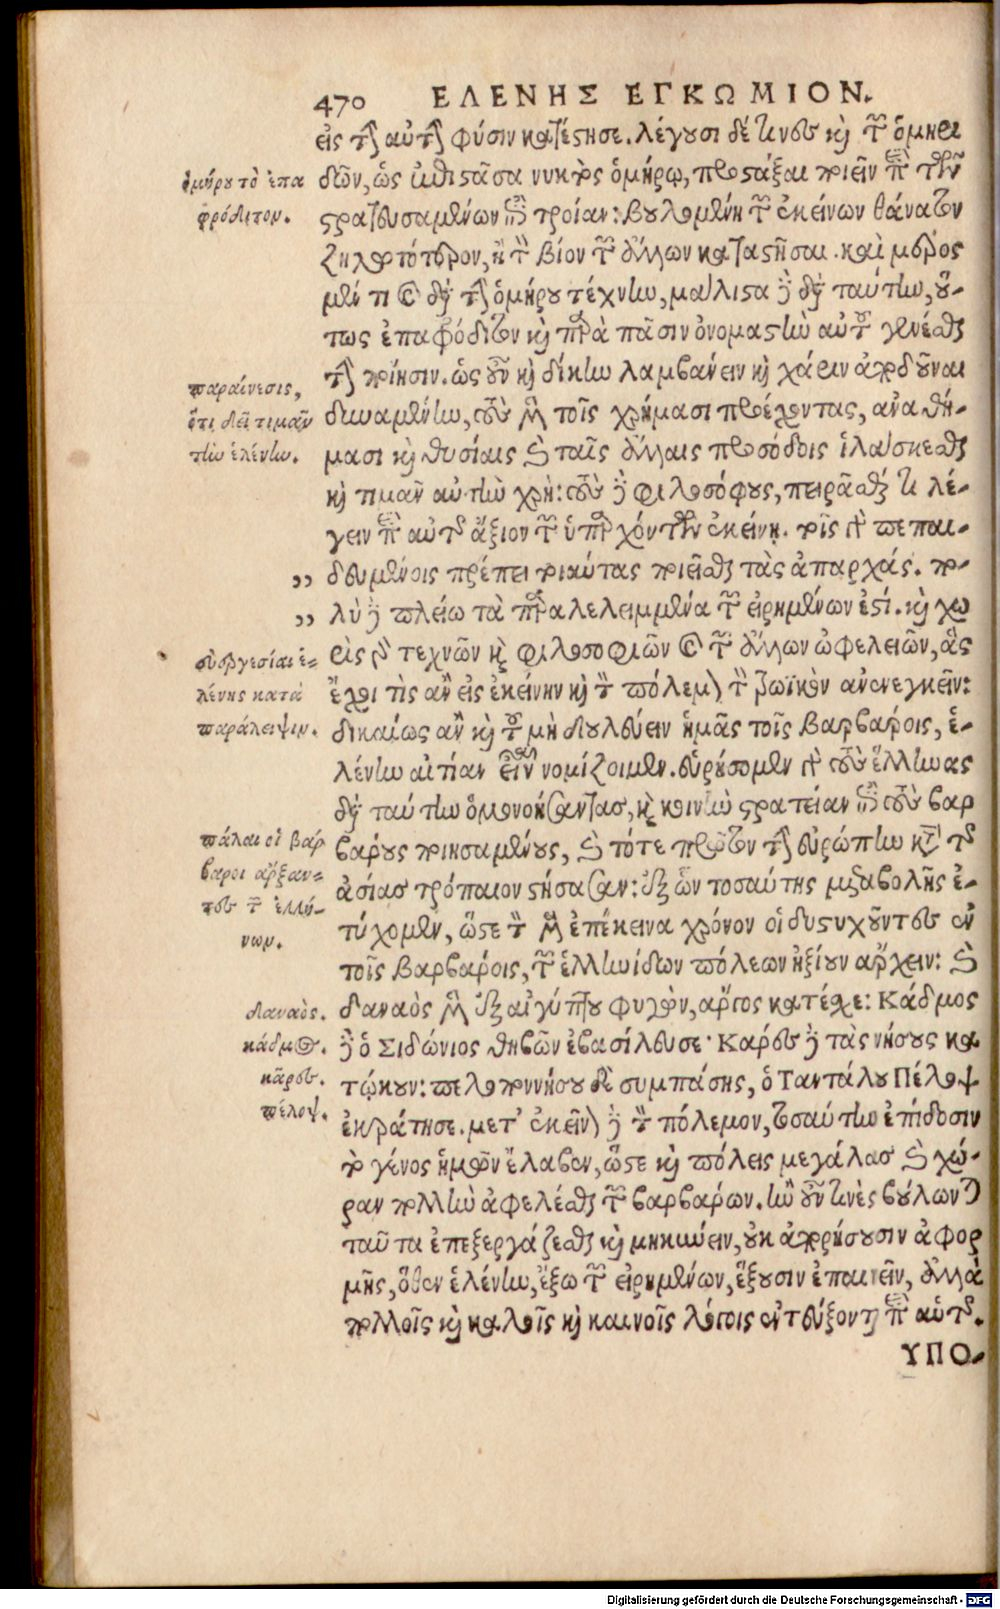 470 ΕΛΕΝΗΣ ΕΓΚΩΜΙΟΝ.
εἰς τὴν αὐτὴν φύσιν κατέστησε. λέγουσι δέ τινες καὶ τῶν ὁμηρι
δῶν, ὡς ἐπιστᾶσα νυκτὸς ὁμήρῳ, προστάξαι ποιεῖν περὶ τῶν
στρατευσαμένων ἐπὶ τροίαν: βουλομένη τὸν ἐκείνων θάνατον
ζηλωτότερον, ἢ τὸν βίον τῶν ἄλλων καταστῆσαι. καὶ μέρος
μέν τι καὶ διὰ τὴν ὁμήρου τέχνην, μάλιστα δὲ διὰ ταύτην, οὕ-
τως ἐπαφρόδιτον καὶ παρὰ πᾶσιν ὀνομαστὴν αὐτοῦ γενέσθαι
τὴν ποίησιν. ὡς οὖν καὶ δίκην λαμβάνειν καὶ χάριν ἀποδοῦναι
δυναμένην, τοὺς μὲν τοῖς χρήμασι προέχοντας, ἀναθή-
μασι καὶ θυσίαις καὶ ταῖς ἄλλαις προσόδοις ἱλάσκεσθαι
καὶ τιμᾶν αὐτὴν χρή: τοὺς δὲ φιλοσόφους, πειρᾶσθαί τι λέ-
γειν περὶ αὐτῆς ἄξιον τῶν ὑπαρχόντων ἐκείνῃ. τοῖς γὰρ πεπαι-
δευμένοις πρέπει τοιαύτας ποιεῖσθαι τὰς ἀπαρχάς. πο-
λὺ δὲ πλείω τὰ παραλελειμμένα τῶν εἰρημένων ἐστί. καὶ χω
ρὶς γὰρ τεχνῶν καὶ φιλοσοφιῶν καὶ τῶν ἄλλων ὠφελειῶν, ἃς
ἔχοι τὶς ἂν εἰς ἐκείνην καὶ τὸν πόλεμον τὸν τρωϊκὸν ἀνενεγκεῖν:
δικαίως ἂν καὶ τοῦ μὴ δουλεύειν ἡμᾶς τοῖς βαρβάροις, ἑ-
λένην αἰτίαν εἶναι νομίζοιμεν. εὑρήσομεν γὰρ τοὺς ἕλληνας
δι᾽ ταύτην ὁμονοήσαντας, καὶ κοινὴν στρατείαν ἐπὶ τοὺς βαρ
βάρους ποιησαμένους, καὶ τότε πρῶτον τὴν εὐρώπην κατὰ τῆς
ἀσίας τρόπαιον στήσασαν: ἐξ ὧν τοσαύτης μεταβολῆς ἐ-
τύχομεν, ὥστε τὸν μὲν ἐπέκεινα χρόνον οἱ δυστυχοῦντες ἐν
τοῖς βαρβάροις, τῶν ἑλληνίδων πόλεων ἠξίουν ἄρχειν: καὶ
δαναὸς μὲν ἐξ αἰγύπτου φυγὼν, ἄργος κατέσχε: Κάδμος
δὲ ὁ Σιδώνιος θηβῶν ἐβασίλευσε· Κᾶρες δὲ τὰς νήσους κα
τῴκουν: πελοποννήσου δὲ συμπάσης, ὁ Ταντάλου Πέλοψ
ἐκράτησε. μετ᾽ ἐκεῖνον δὲ τὸν πόλεμον, τοσαύτην ἐπίδοσιν
τὸ γένος ἡμῶν ἔλαβεν, ὥστε καὶ πόλεις μεγάλας καὶ χώ-
ραν πολλὴν ἀφελέσθαι τῶν βαρβάρων. ἢν οὖν τινὲς βούλωνται
ταῦτα ἐπεξεργάζεσθαι καὶ μηκύειν, οὐκ ἀπορήσουσιν ἀφορ
μῆς, ὅθεν ἑλένην, ἔξω τῶν εἰρημένων, ἕξουσιν ἐπαινεῖν, ἀλλὰ
πολλοῖς καὶ καλοῖς καὶ καινοῖς λόγοις ἐντεύξονται περὶ αὐτῆς.
ΥΠΟ-
ὁμήρου τὸ ἐπα
φρόδιτον.
παραίνεσις,
ὅτι δεῖ τιμᾶν
τὴν ἑλένην.
εὐεργεσίαι ἑ-
λένης κατὰ
παράλειψιν.
πάλαι οἱ βάρ
βαροι ἄρξαν-
τες τῶν ἑλλή-
νων.
δαναὸς.
κάδμος.
κᾶρες.
πέλοψ.
Digitalisierung gefördert durch die Deutsche Forschungsgemeinschaft - DFG